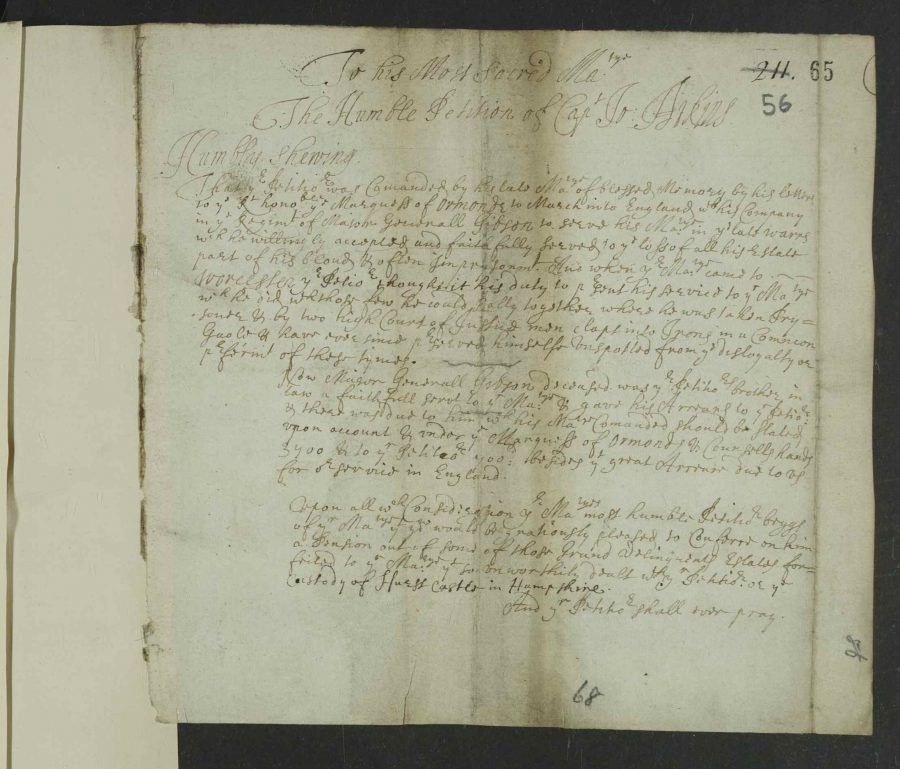 211. 65
56
To his Most Sacred Ma:tye
The Humble Petition of Capt Jo:
Humbly Shewing.
That yr Petitior was Comanded by his late Matye of blessed Memory by his letter
to ye Rt honoble ye Marquess of Ormonde to March into England wth his Company
in ye Regimt of Major Generall Gibson to serve his Matye in ye late warrs
wch he willingly accepted and faithfully served to ye loss of all his Estate
part of his bloud & often Imprisonmt. And when yr Matye came to
Worcester yr Petior thought it his duty to psent his service to yr Matye
wch he did wth those few he could Rally together where he was taken Pry=
soner & by two high Court of Justice men clapt into Irons in a Common
Gaole & have ever since pserved himselfe Unspotted from ye disloyalty or
pferimt of those tymes.
Now Major Generall Gibson deceased was yr Petitiors brother in
law a faithfull servt to yr Matye & gave his Arrears to yr Petior
& there was due to him wch his Matye Comanded should be stated
upon account & under ye Marquess of Ormonds & Counsells hands
3700 & to yr Petitior 900: besides ye great Arrears due to us
for or service in England.
Upon all wch Consideracon yr Matyes most humble Petitior beggs
of yr Matye yt ye would be gratiously pleased to Conferre on him
a Pension out of some of those Grand Delinquents Estates for=
feited to yr Matye yt so unworthily dealt wth yr Petitior or ye
Custody of Hurst Castle in Hampshire.
And yr Petitior shall ever pray.
68